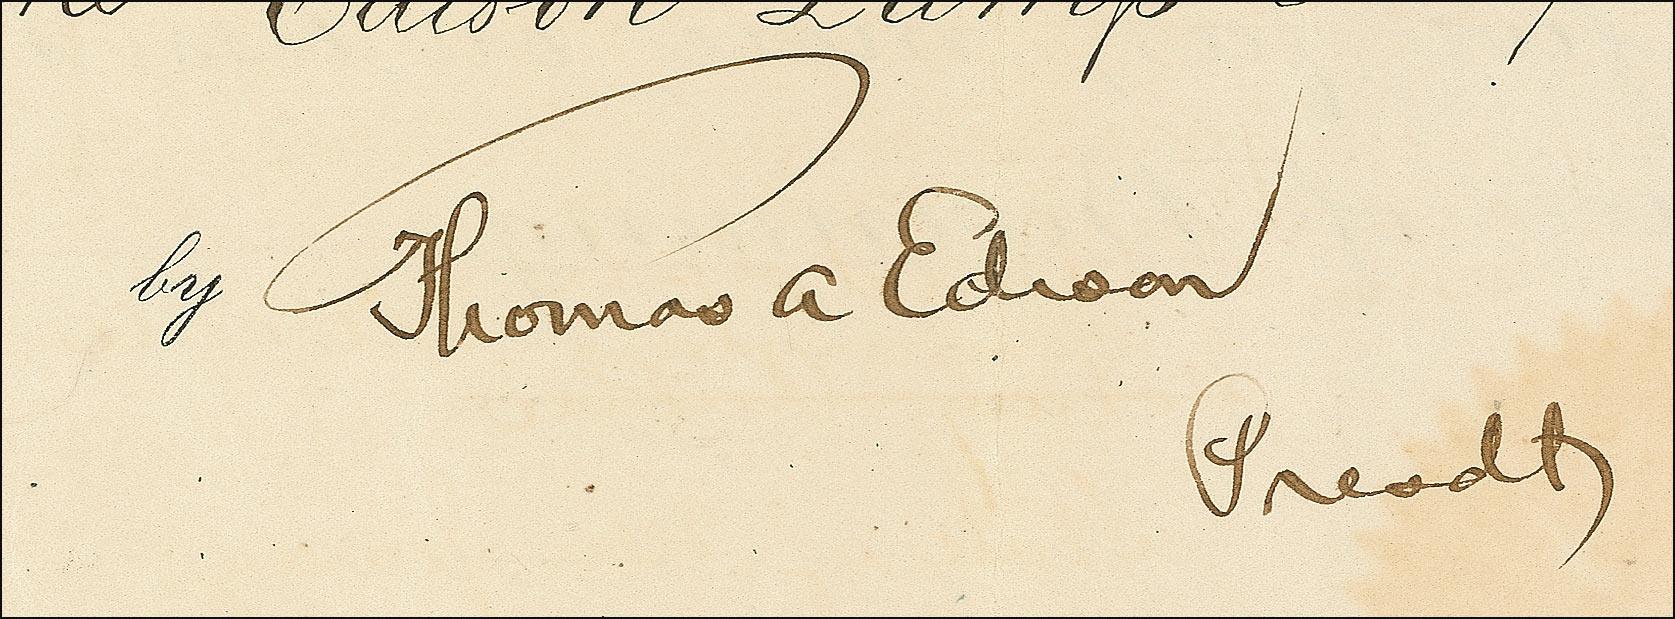 Edison Lamp
by Thomas A Edison
Presdt